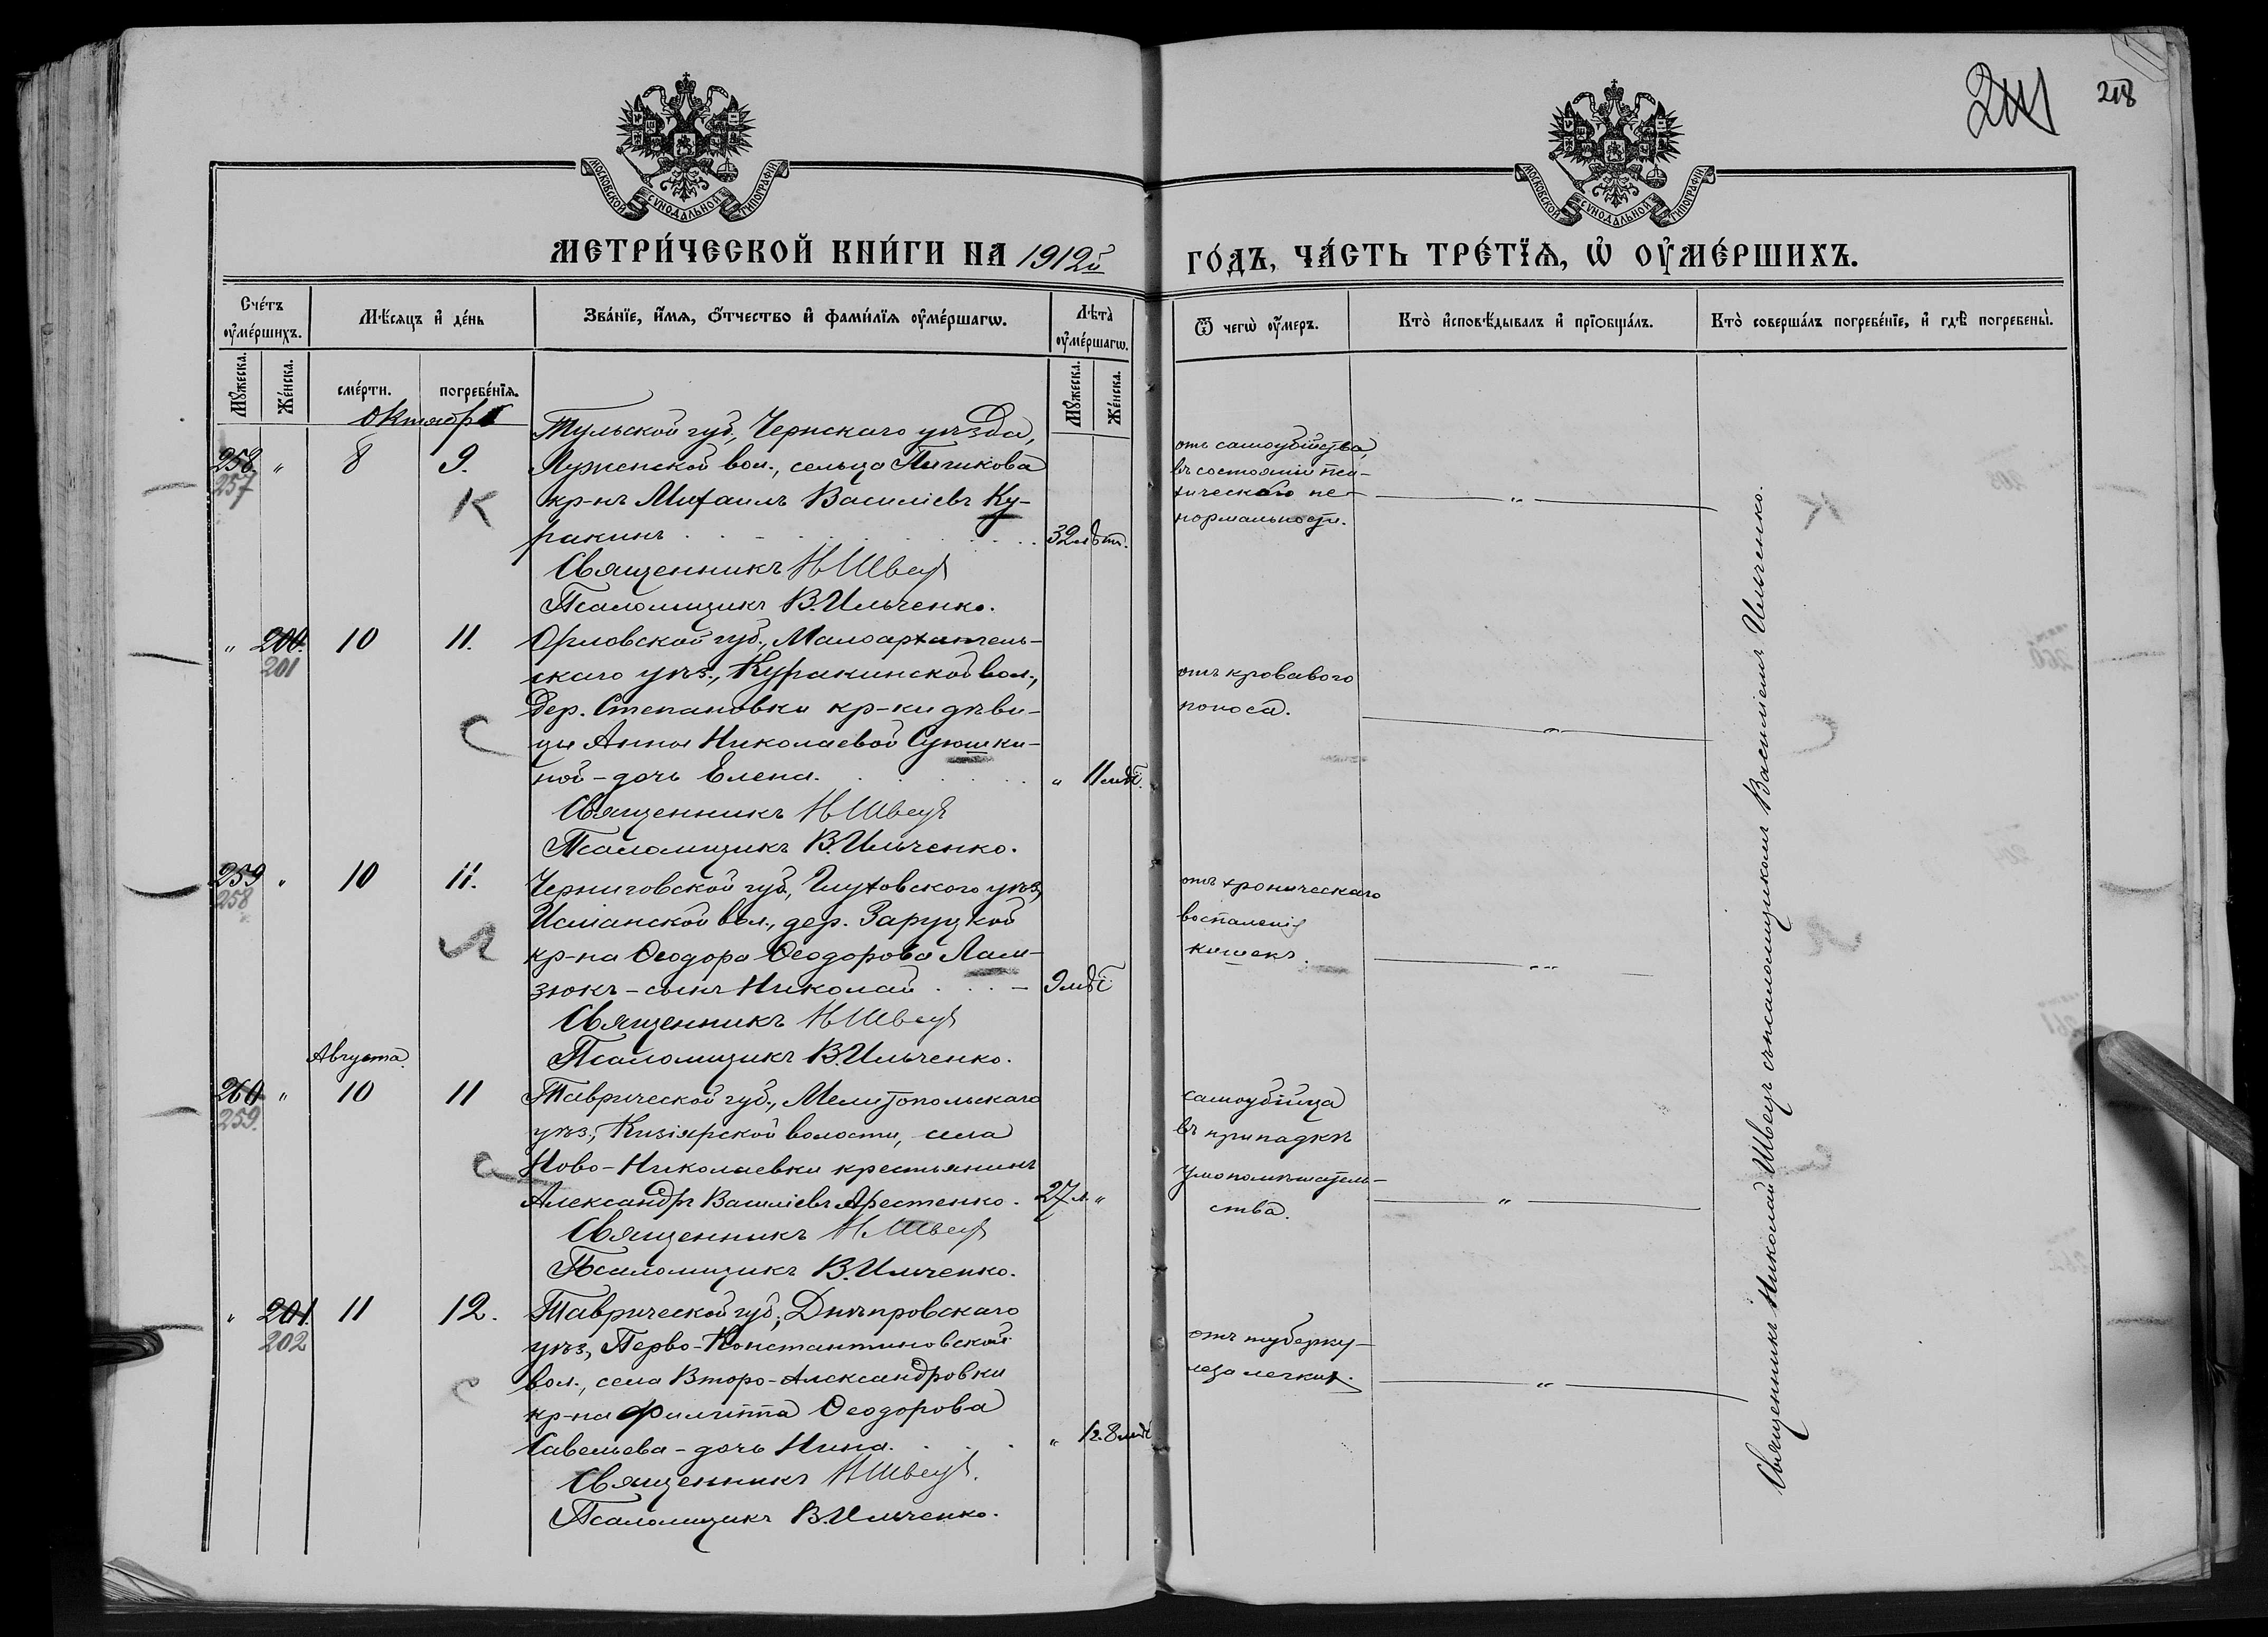 241 218
МОСКОВСКОЙ СѴНОДАЛЬНОЙ ТИПОГРАФІИ
МОСКОВСКОЙ СѴНОДАЛЬНОЙ ТИПОГРАФІИ
МЕТРИ́ЧЕСКОЙ КНИ́ГИ НА 1912й ГО́ДЪ, ЧА́СТЬ ТРЕ́ТЇѦ, Ѡ҆ ОУ҆МЕ́РШИХЪ.
Сче́тъ оу҆ме́ршихъ.
Мꙋ́жеска.
Же́нска.
Мѣ́сяцъ и҆ де́нь
сме́рти.
погребе́нїѧ.
Зва́нїе, и҆́мя, ѻ҆́тчество и҆ фами́лїя оу҆ме́ршагѡ.
Лѣ̀та оу҆ме́ршагѡ.
Мꙋ́жеска.
Же́нска.
Ѿ чегѡ̀ оу҆́меръ.
Кто̀ и҆сповѣ́дывалъ и҆ прїѡбща́лъ.
Кто̀ соверша́лъ погребе́нїе, и҆ гдѣ̀ погребены̀.
Октября
258 257 " 8 9.
К
Тульской губ., Чернскаго уѣзда,
Луженской вол., сельца Пичикова
кр-нъ Михаилъ Василіевъ Ку-
ракинъ 32 лѣт.
Священникъ Н Швецъ
Псаломщикъ В. Ильченко.
отъ самоубійства,
въ состояніи пси-
хическаго не-
нормальности.
"
" 200. 201 10 11.
С
Орловской губ., Малоархангель-
скаго уѣз., Куракинской вол.,
Дер. Степановки кр-ки дѣви-
цы Анны Николаевой Суюшки-
ной - дочь Елена. " 11 мѣс.
Священникъ Н Швецъ
Псаломщикъ В. Ильченко.
отъ кроваваго
поноса.
"
259 258 " 10 11.
Л
Черниговской губ., Глуховскаго уѣз.,
Исманской вол., дер. Заруцкой
кр-на Ѳеодора Ѳеодорова Лам-
зюкъ - сынъ Николай 9 мѣс.
Священникъ Н Швецъ
Псаломщикъ В. Ильченко.
отъ хроническаго
воспаленія
кишекъ.
"
Августа.
260 259. " 10 11
Таврической губ., Мелитопольскаго
уѣз., Кизіярской волости, села
Ново-Николаевки крестьянинъ
Александръ Василіевъ Арестенко. 27 л. "
Священникъ Н. Швецъ
Псаломщикъ В. Ильченко.
самоубійца
въ припадкѣ
умопомѣшатель-
ства.
"
" 201. 202 11 12.
С
Таврической губ., Днѣпровскаго
уѣз., Перво-Константиновской
вол., села Второ-Александровки
кр-на Филиппа Ѳеодорова
Савельева - дочь Нина. " 1г. 8 мѣс
Священникъ Н Швецъ.
Псаломщикъ В. Ильченко.
отъ туберку-
леза легкихъ.
"
Священникъ Николай Швецъ съ псаломщикомъ Василіемъ Ильченко.